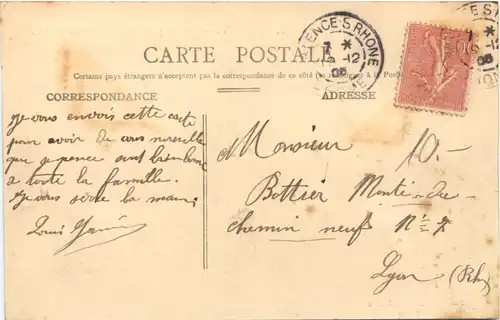 CARTE POSTALE
Certains pays étrangers n'acceptent pas la correspondance de ce côté (se à la Poste)
CORRESPONDANCE
ADRESSE
VALENCE S RHONE
12
06
Je vous envois cette carte
pour avoir de vos nouvelle
que je pence sont bien bonne
a toute la famille.
Je vous serre la main
Louis
10.-
Monsieur
Bottier Montée de
chemin neuf N° 7
Lyon (Rh)